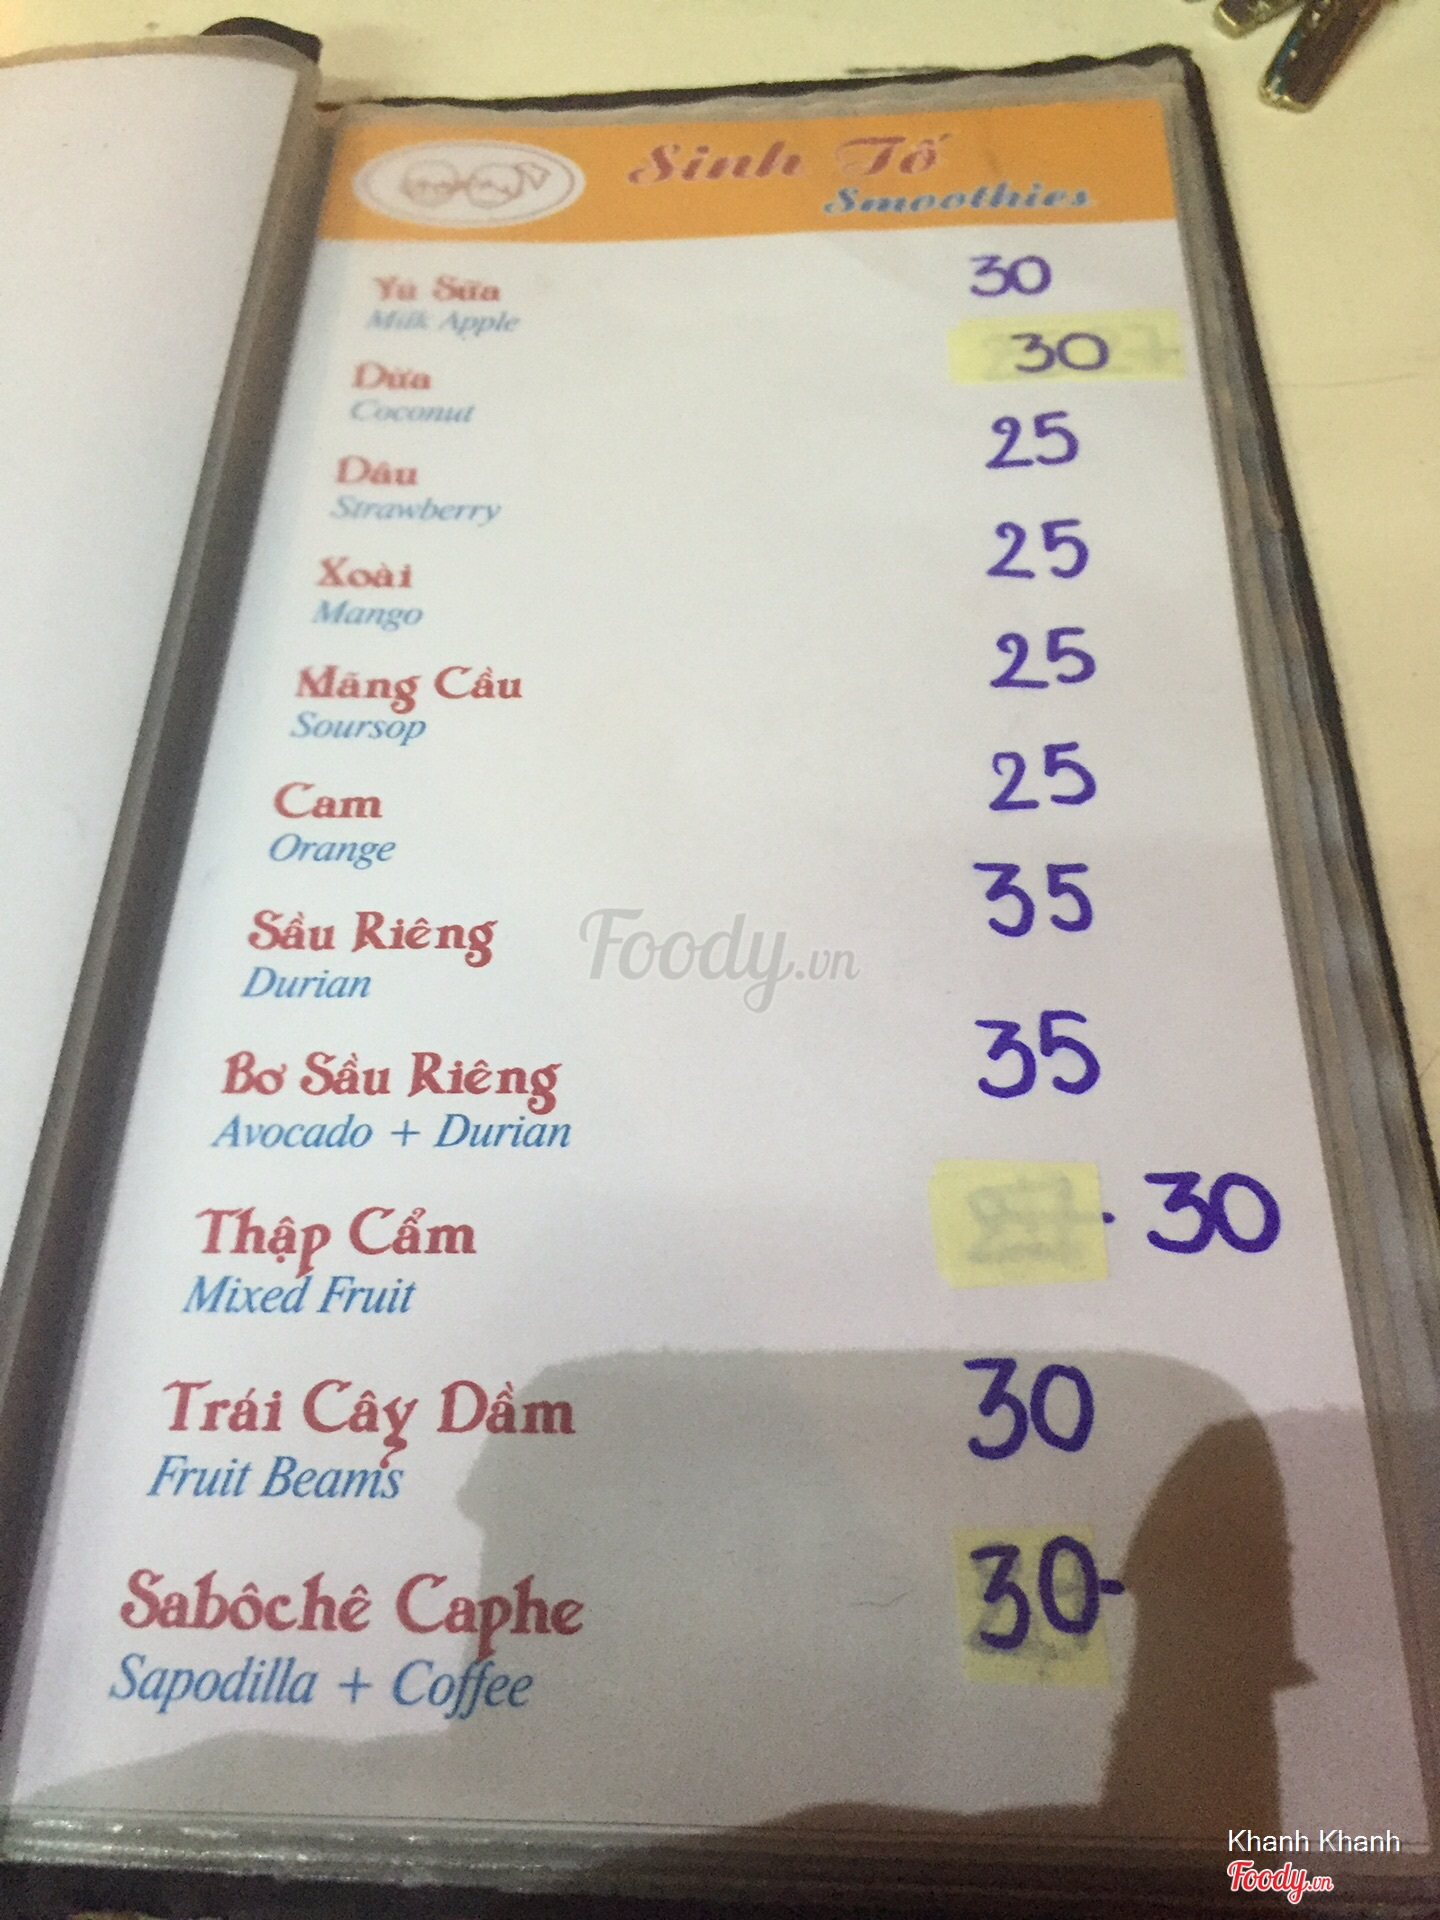 Sinh Tố
Smoothies
Vú Sữa 30
Milk Apple
Dừa 30
Coconut
Dâu 25
Strawberry
Xoài 25
Mango
Mãng Cầu 25
Soursop
Cam 25
Orange
Sầu Riêng 35
Durian
Foody.vn
Bơ Sầu Riêng 35
Avocado + Durian
Thập Cẩm - 30
Mixed Fruit
Trái Cây Dầm 30
Fruit Beams
Sabôchê Caphe 30-
Sapodilla + Coffee
Khanh Khanh
Foody.vn